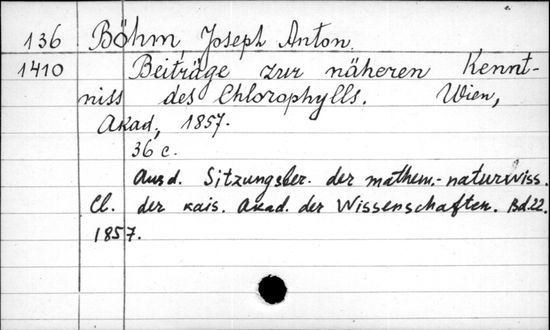 136 Böhm, Joseph Anton.
1410 Beiträge zur näheren Kennt-
niss des Chlorophylls. Wien,
Akad, 1857.
36 c.
Aus d. Sitzungsber. der mathem.-naturwiss.
Cl. der kais. Akad. der Wissenschaften. Bd.22.
1857.